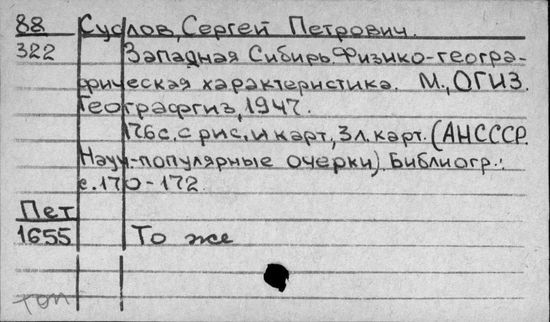 88 Суслов, Сергей Петрович.
322 Западная Сибирь. Физико-геогра-
фическая характеристика. М., ОГИЗ.
Географгиз, 1947.
176с. с рис. и карт., 3л. карт. (АНСССР.
Науч-популярные очерки). Библиогр.:
с. 170-172.
Пет
1655 То же
топ